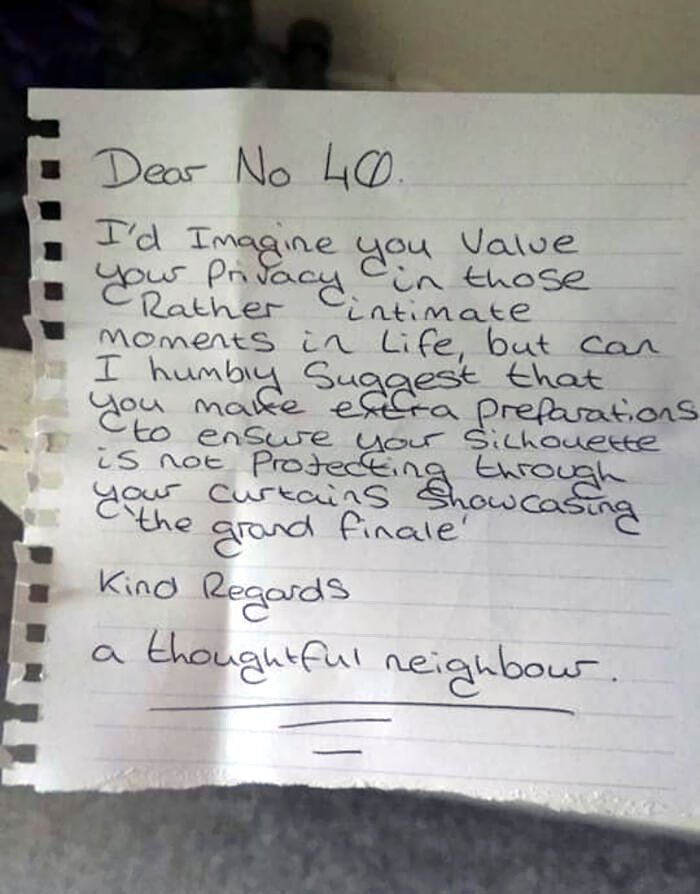 Dear No 40.
I'd Imagine you Value
your Privacy in those
Rather intimate
moments in Life, but can
I humbly Suggest that
you make extra Preparations
to ensure your Silhouette
is not Protecting through
your curtains Showcasing
'the grand finale'
Kind Regards
a thoughtful neighbour.